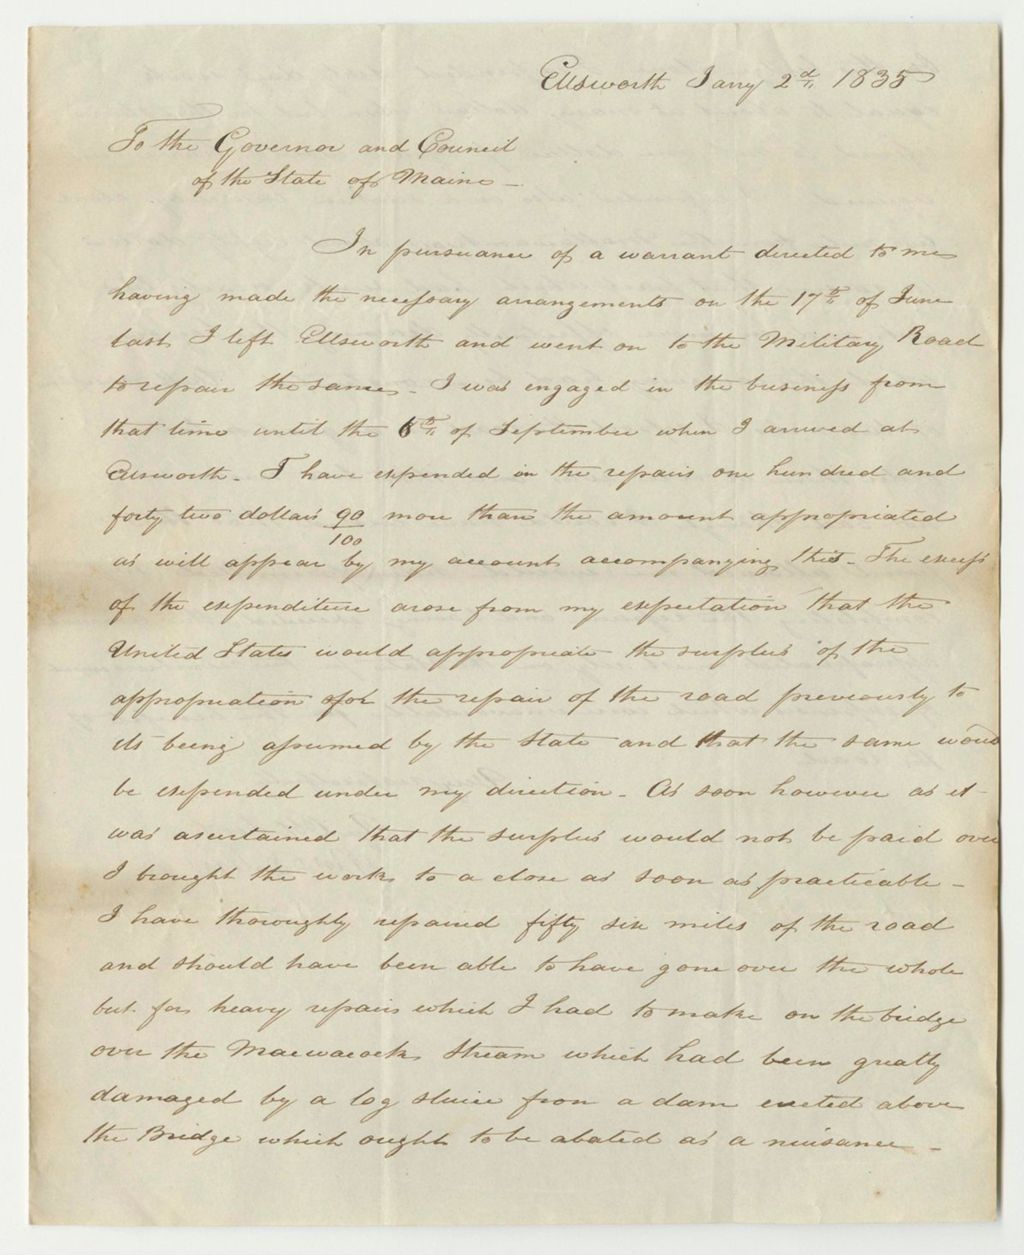 Ellsworth Jany 2d 1835
To the Governor and Council
of the State of Maine -
In pursuance of a warrant directed to me
having made the necessary arrangements on the 17th of June
last I left Ellsworth and went on to the Military Road
to repair the same - I was engaged in the business from
that time until the 6th of September when I arrived at
Ellsworth - I have expended in the repairs one hundred and
forty two dollars 90/100 more than the amount appropriated
as will appear by my account accompanying this - The excess
of the expenditure arose from my expectation that the
United States would appropriate the surplus of the
appropriation for the repair of the road previously to
its being assumed by the State and that the same would
be expended under my direction - As soon however as it
was ascertained that the surplus would not be paid over
I brought the work to a close as soon as practicable -
I have thoroughly repaired fifty six miles of the road
and should have been able to have gone over the whole
but for heavy repairs which I had to make on the bridge
over the Macwacock Stream which had been greatly
damaged by a log sluice from a dam erected above
the Bridge which ought to be abated as a nuisance -